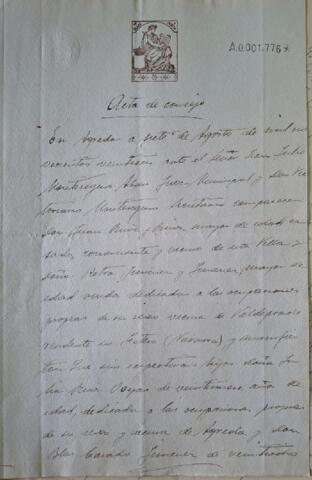 A.0.001.776*
Acta de consejo
En Agreda a siete de Agosto de mil no
vecientos veintiseis ante el Señor Don Julio
Juez Municipal y Don Vic
toriano Secretario comparecen
Don Juan Ruiz y Ruiz mayor de edad ca
sado, comerciante y vecino de esta Villa y
doña Petra Jimenez y Jimenez, mayor de
edad viuda dedicada a las ocupaciones
propias de su sexo vecina de Valdeprado
residente en (Navarra) y manifies
tan Que sus respectivos hijos doña Ju
lia Ruiz de veintinueve años de
edad, dedicada a las ocupaciones propias
de su sexo y vecina de Agreda y don
Blas Jimenez de veintiocho